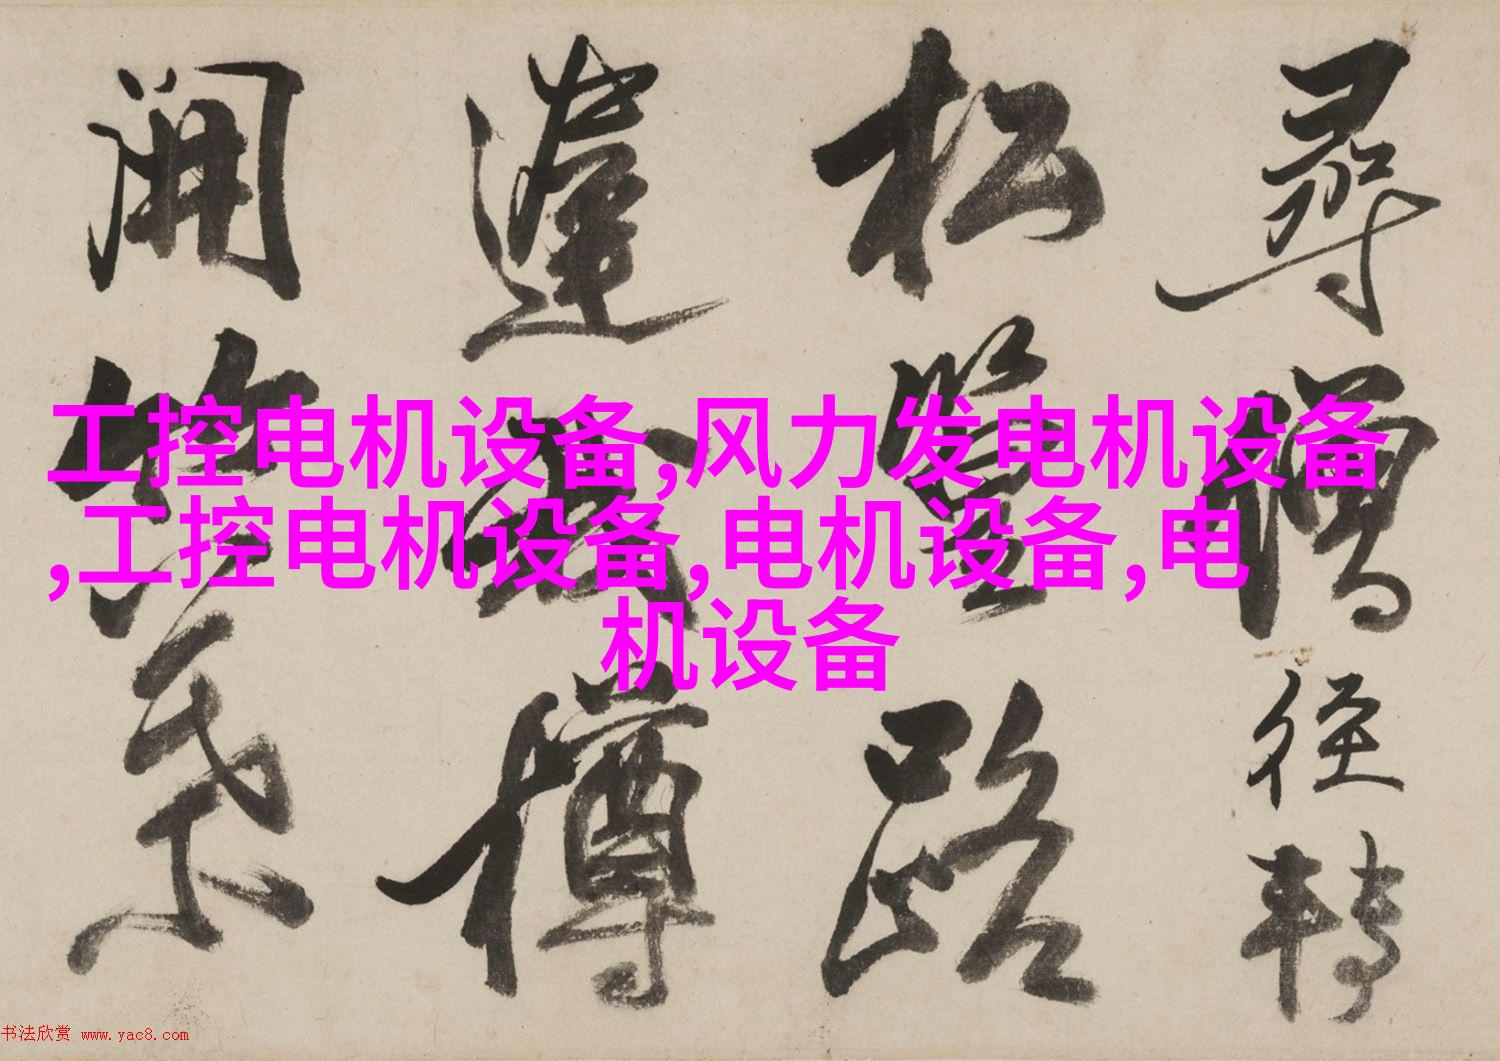 尋僧徑轉
松篁路
蓬
樽
開
工控电机设备,风力发电机设备
,工控电机设备,电机设备,电
机设备
书法欣赏 www.yac8.com